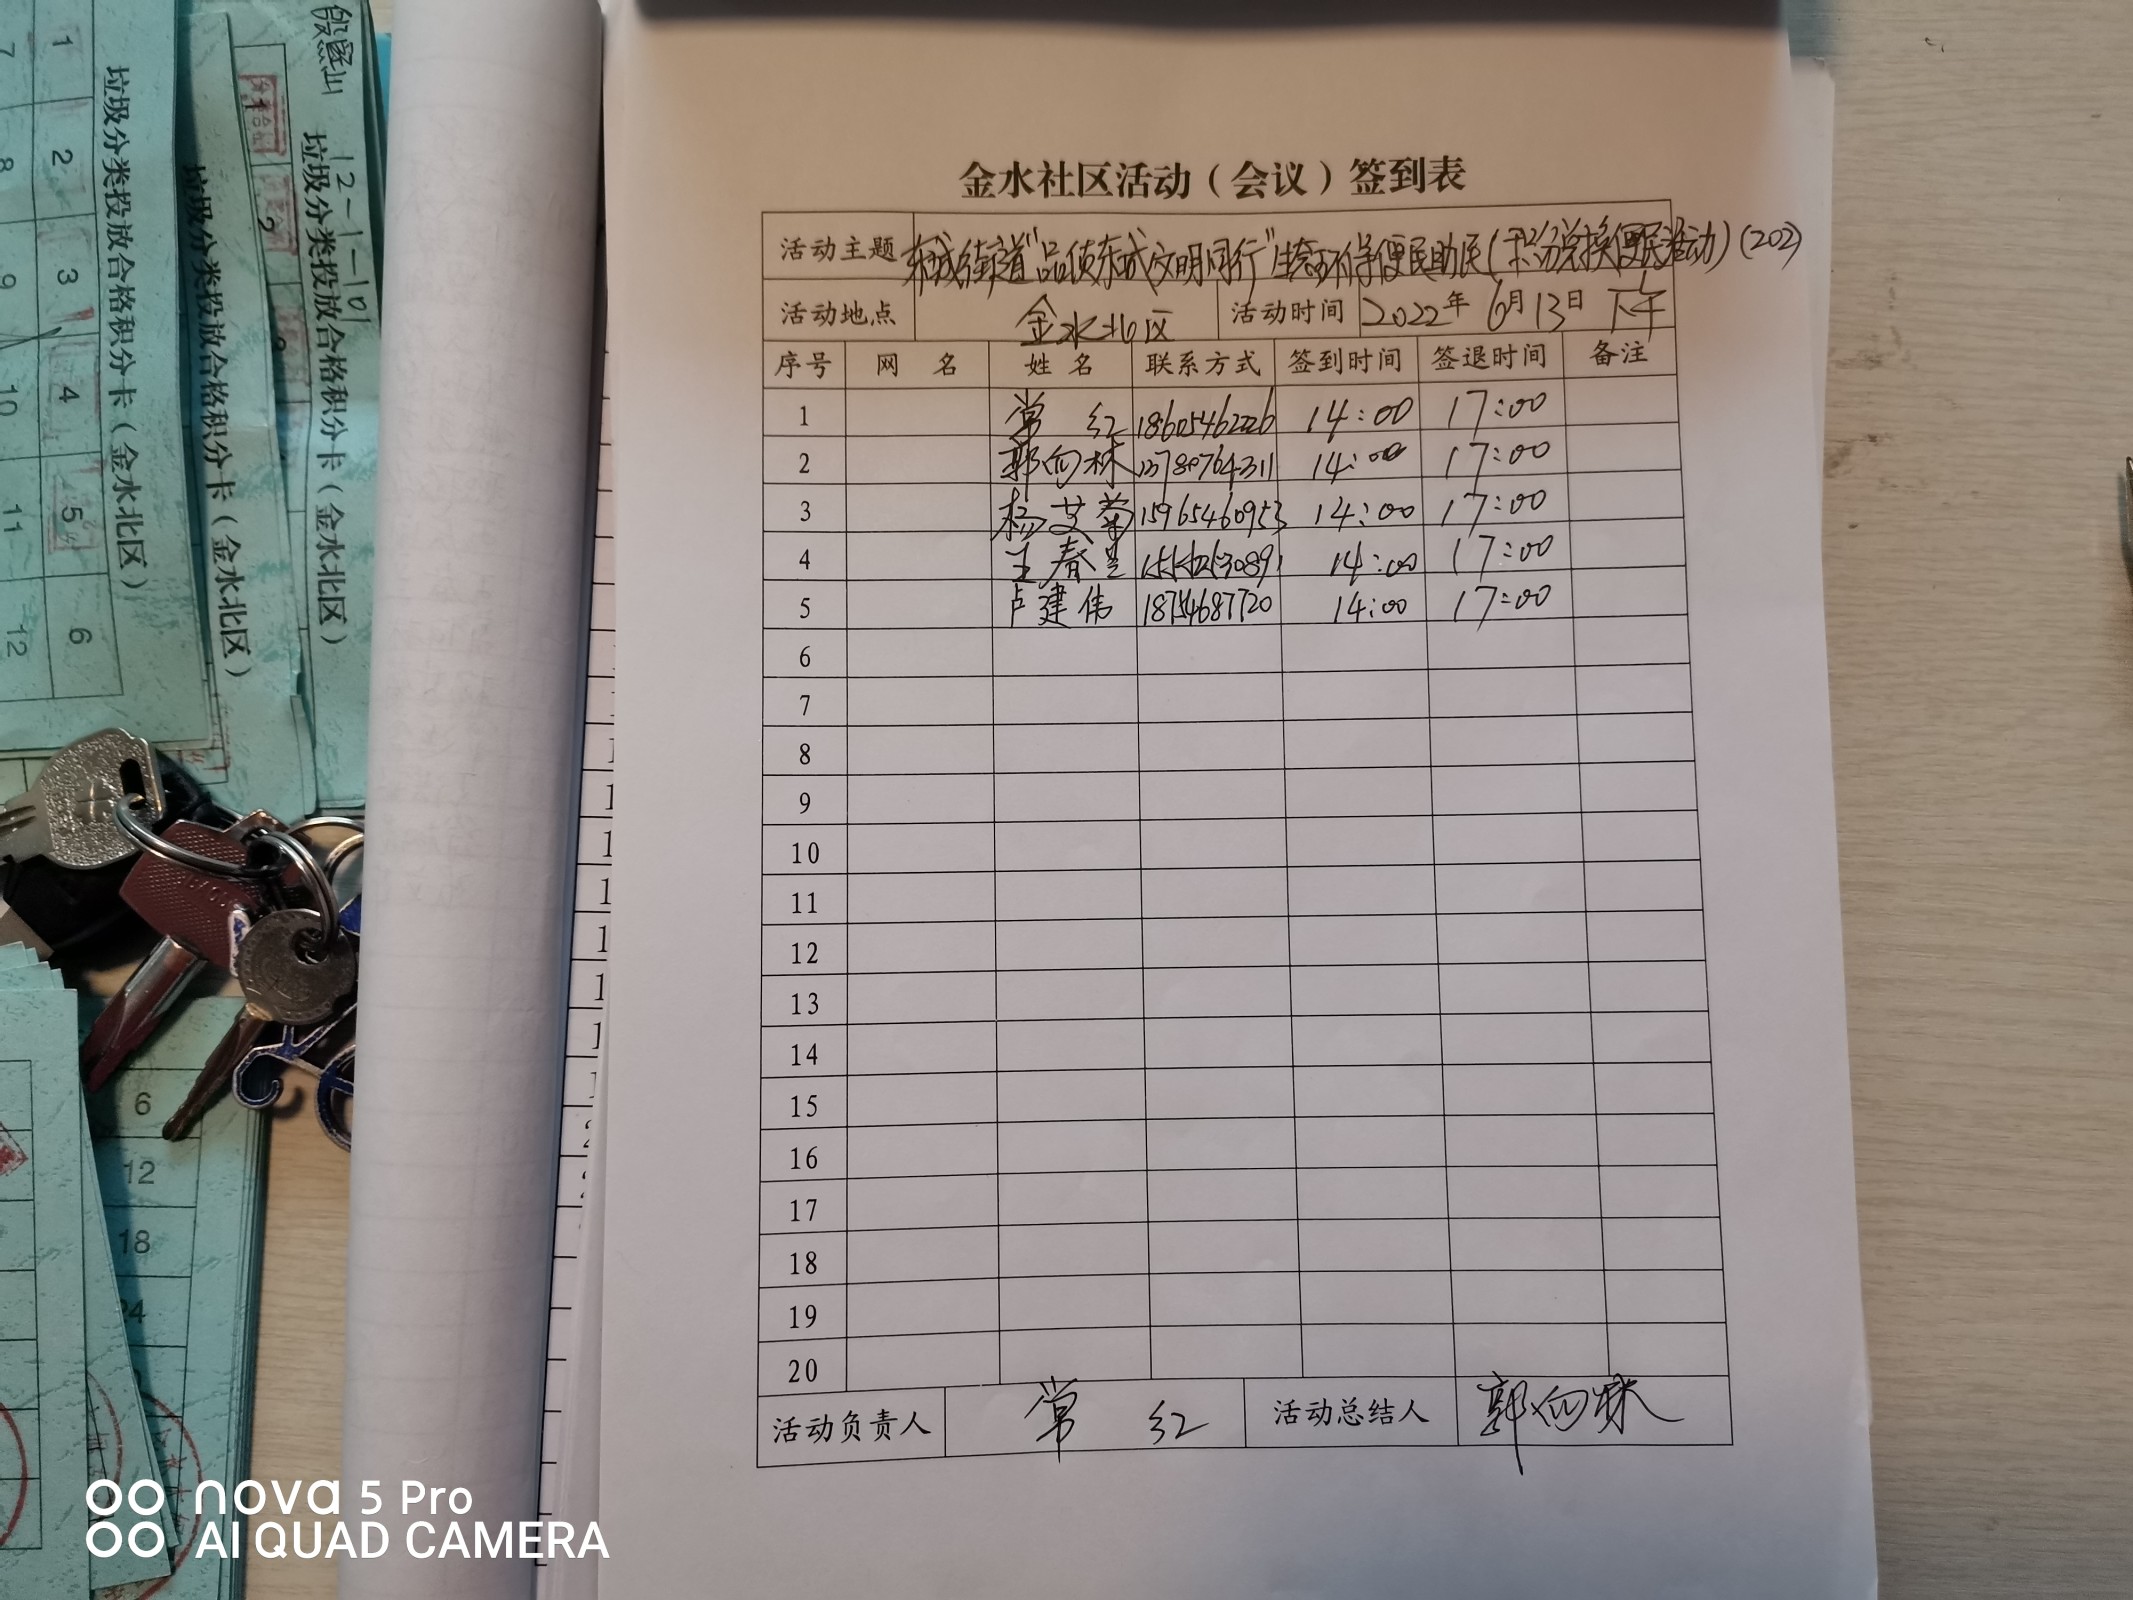 金水社区活动（会议）签到表
活动主题 东城街道"品质东城文明同行"生态环保便民助民(积分兑换便民活动)(202)
活动地点 金水北区 活动时间 2022年6月13日 下午
序号 网 名 姓 名 联系方式 签到时间 签退时间 备注
1 常 红 14:00 17:00
2 郭向林 14:00 17:00
3 杨艾菊 15965460953 14:00 17:00
4 王春 14:00 17:00
5 卢建伟 18754687720 14:00 17:00
6
7
8
9
10
11
12
13
14
15
16
17
18
19
20
活动负责人 常 红 活动总结人 郭向林
垃圾分类投放合格积分卡（金水北区）
1 2 3 4 5 6
7 8 9 10 11 12
垃圾分类投放合格积分卡（金水北区）
12-1-101
垃圾分类投放合格积分卡（金水北区）
6
12
18
24
nova 5 Pro
AI QUAD CAMERA